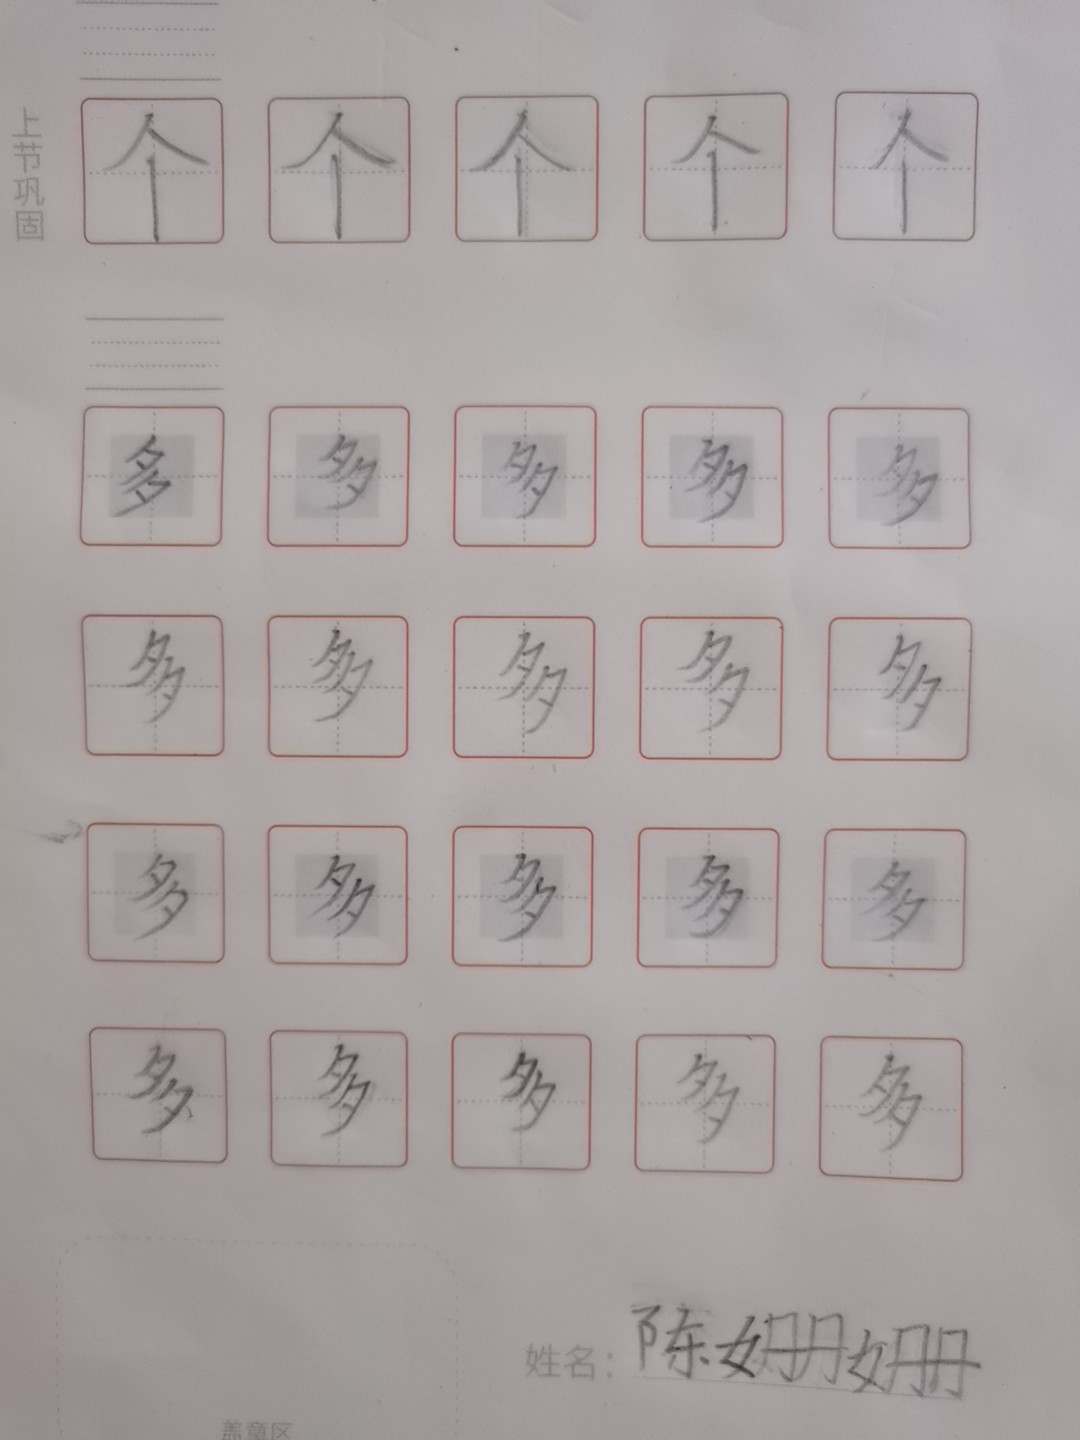 上节巩固
个 个 个 个 个
多 多 多 多 多
多 多 多 多 多
多 多 多 多 多
多 多 多 多 多
姓名：陈姗姗
盖章区